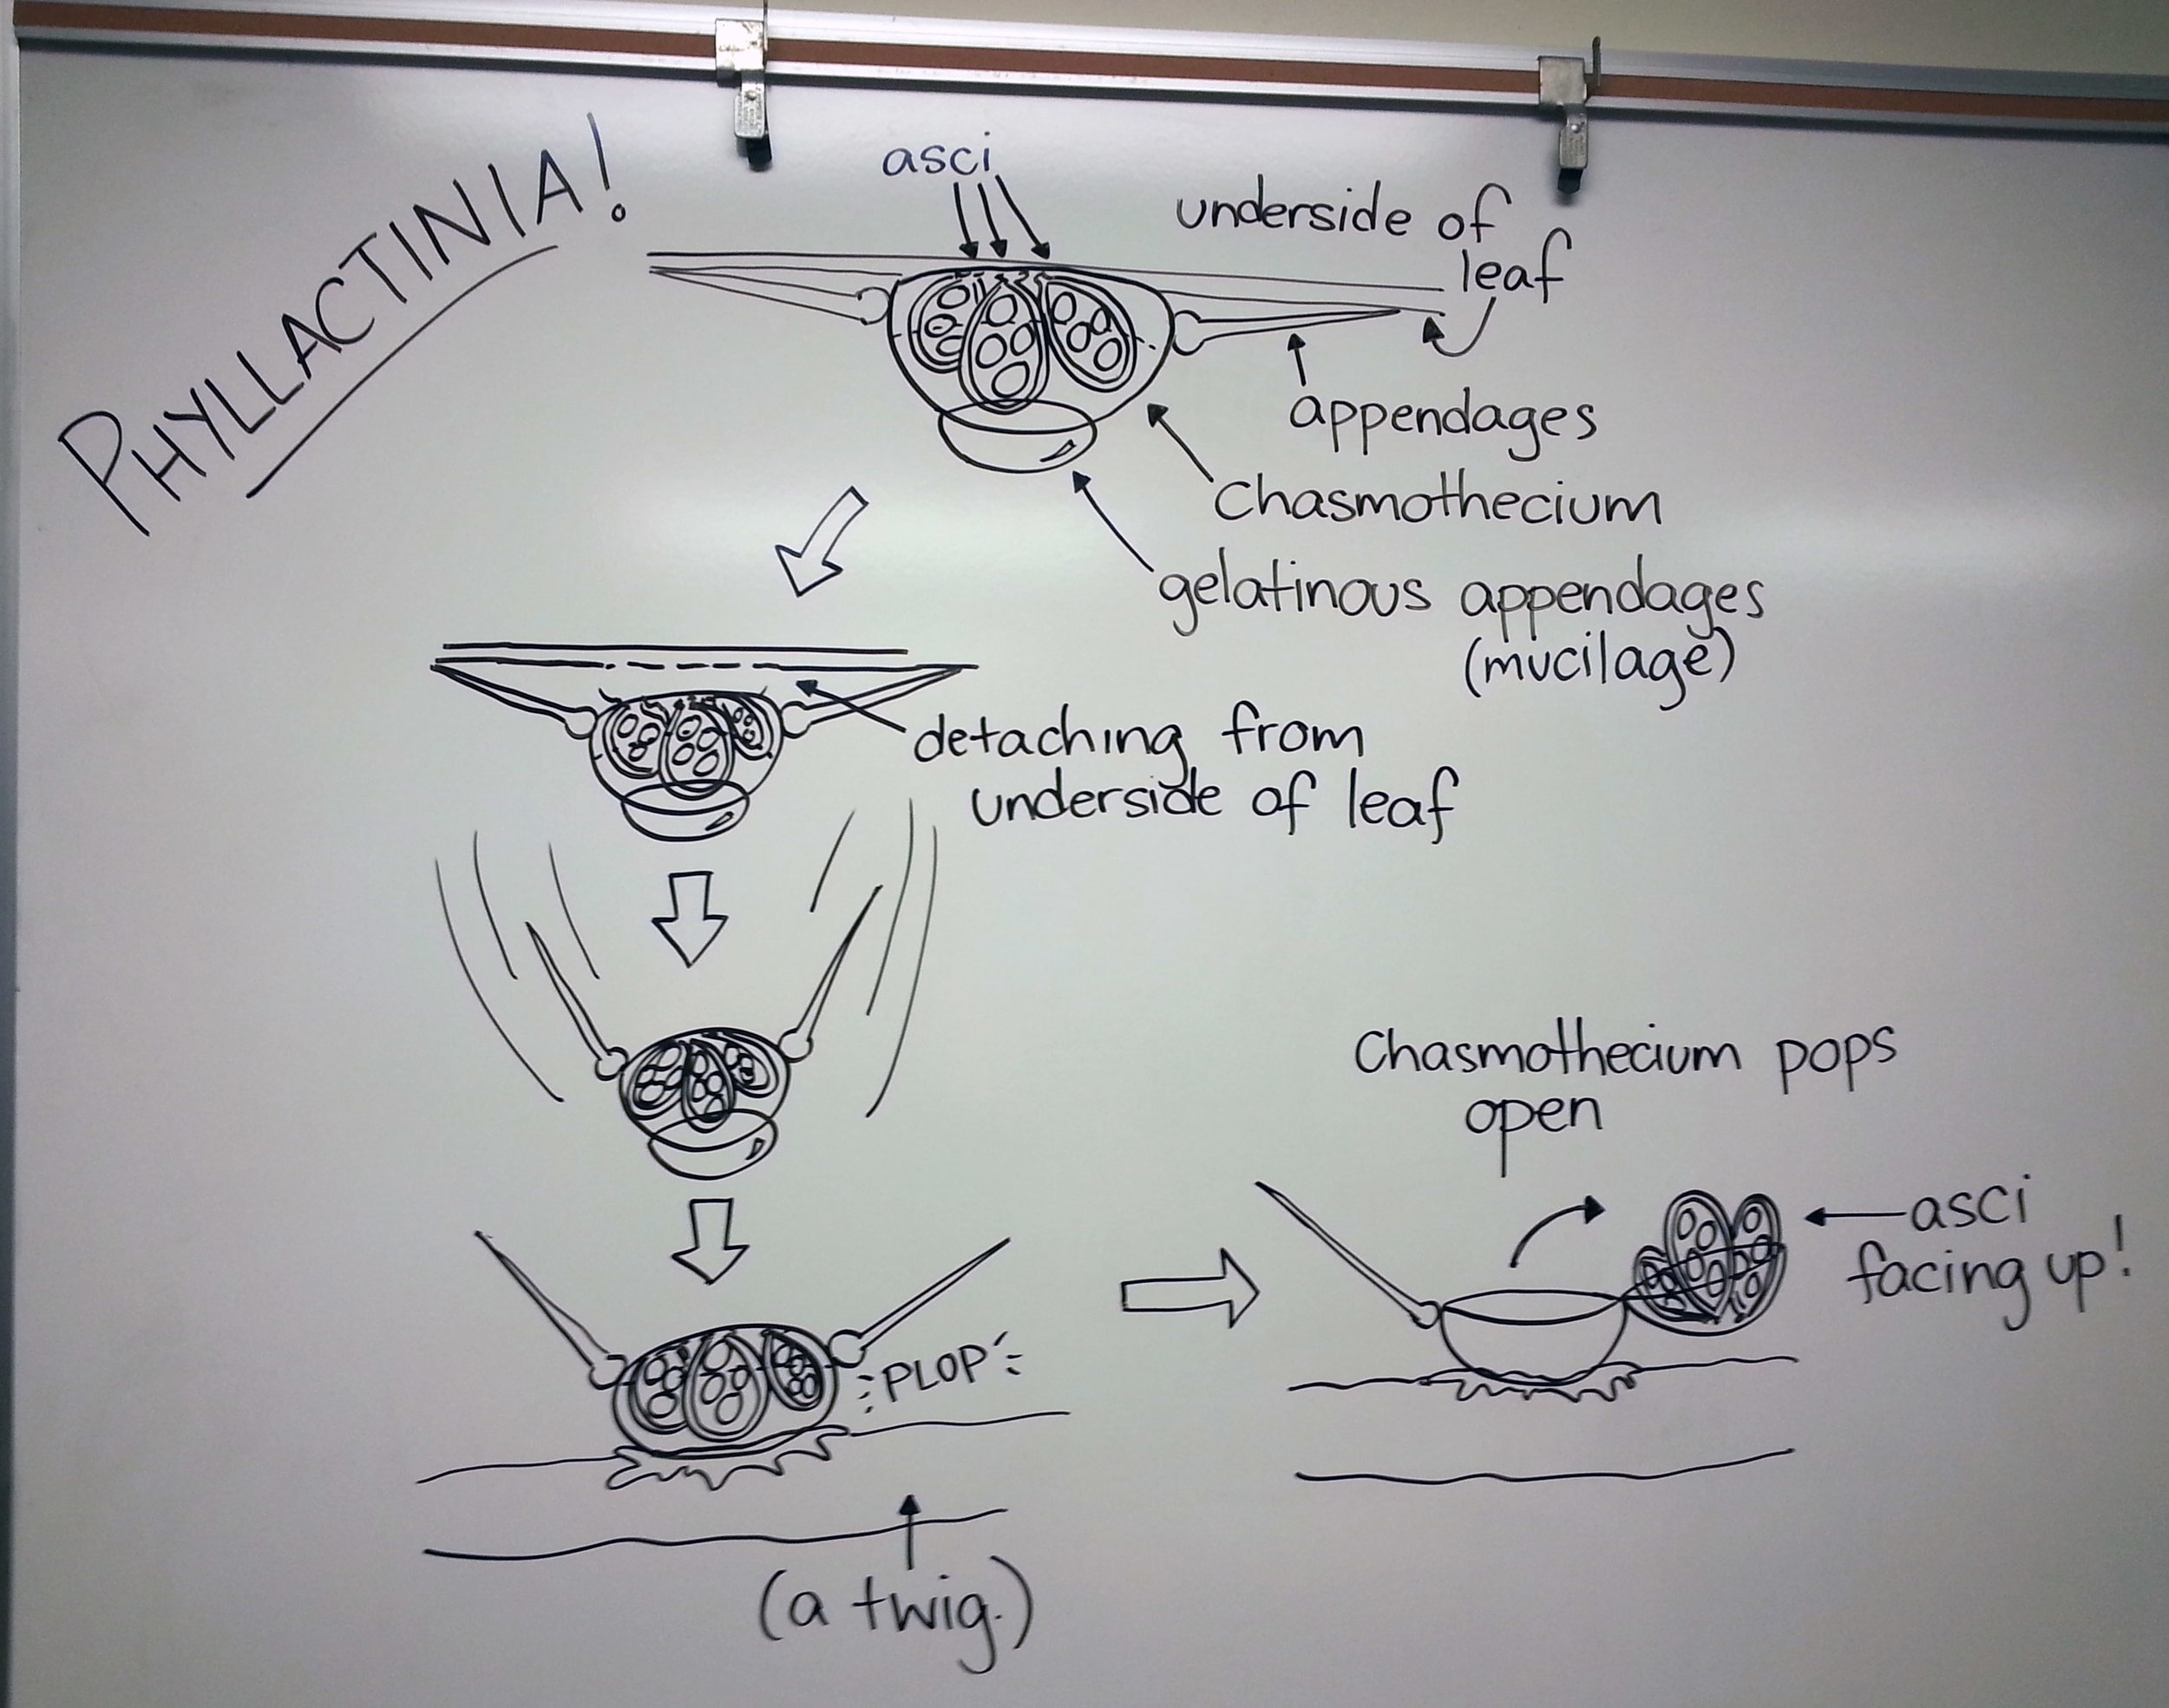 PHYLLACTINIA!
asci
underside of
leaf
appendages
Chasmothecium
gelatinous appendages
(mucilage)
detaching from
underside of leaf
Chasmothecium pops
open
asci
facing up!
PLOP
(a twig.)